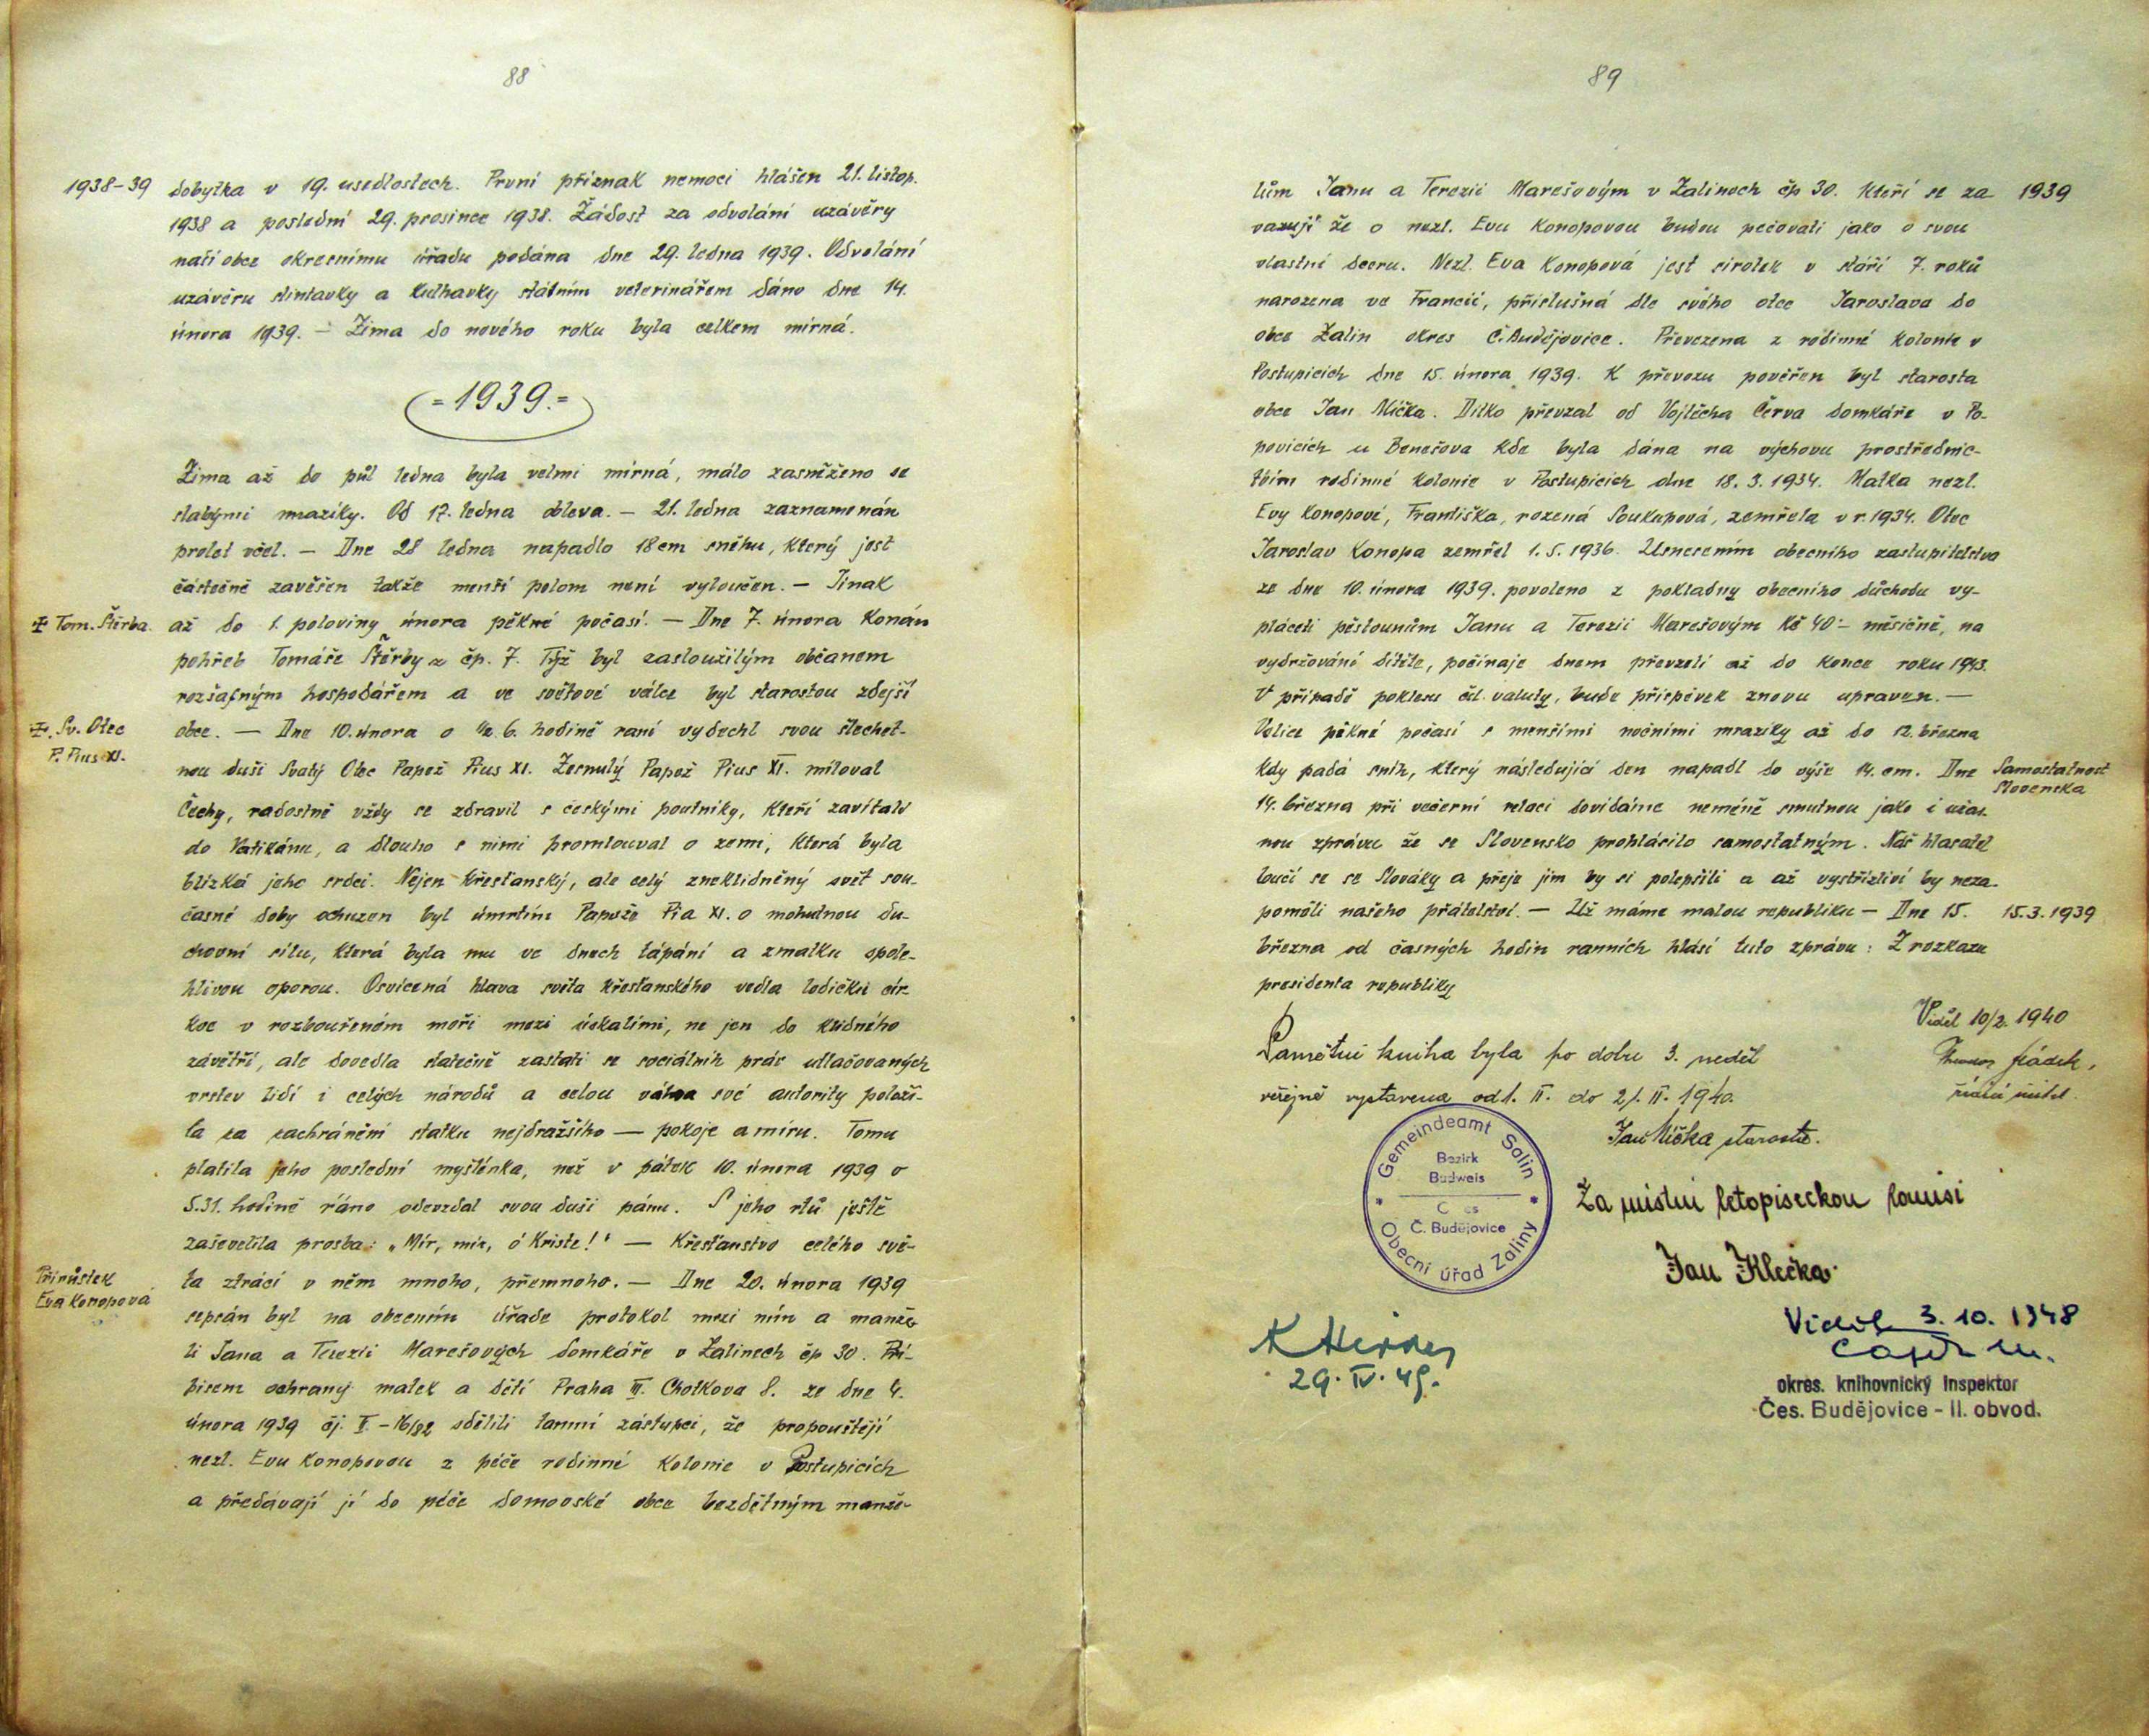 88
1938-39
dobytka v 19. usedlostech. První příznak nemoci hlášen 21. listop.
1938 a poslední 29. prosince 1938. Žádost za odvolání uzávěry
naší obce okresnímu úřadu podána dne 29. ledna 1939. Odvolání
uzávěru slintavky a kulhavky státním veterinářem dáno dne 14.
února 1939. – Zima do nového roku byla celkem mírná.
= 1939. =
Zima až do půl ledna byla velmi mírná, málo zasněženo se
slabými mrazíky. Od 17. ledna obleva. – 21. ledna zaznamenán
prolet včel. – Dne 28 ledna napadlo 18 cm sněhu, který jest
částečně zavěšen takže menší polom není vyloučen. – Jinak
✠ Tom. Štěrba.
až do 1. poloviny února pěkné počasí. – Dne 7. února konán
pohřeb Tomáše Štěrby z čp. 7. Týž byl zasloužilým občanem
rozšafným hospodářem a ve světové válce byl starostou zdejší
✠. Sv. Otec
P. Pius XI.
obce. – Dne 10. února o ½ 6. hodině raní vydechl svou šlechet-
nou duši Svatý Otec Papež Pius XI. Zesnulý Papež Pius XI. miloval
Čechy, radostně vždy se zdravil s českými poutníky, kteří zavítali
do Vatikánu, a dlouho s nimi promlouval o zemi, která byla
blízká jeho srdci. Nejen křesťanský, ale celý zneklidněný svět sou-
časné doby ochuzen byl úmrtím Papeže Pia XI. o mohutnou du-
chovní sílu, která byla mu ve dnech tápání a zmatku spole-
hlivou oporou. Osvícená hlava světa křesťanského vedla lodičku cír-
kve v rozbouřeném moři mezi úskalími, ne jen do klidného
závětří, ale dovedla statečně zastati se sociálních práv utlačovaných
vrstev lidí i celých národů a celou váhou své autority položi-
la za zachránění statku nejdražšího — pokoje a míru. Tomu
platila jeho poslední myšlénka, než v pátek 10. února 1939 o
5.31. hodině ráno odevzdal svou duši pánu. S jeho rtů ještě
zaševelila prosba: „Mír, mír, ó Kriste!" — Křesťanstvo celého svě-
Přírůstek
Eva Konopová
ta ztrácí v něm mnoho, přemnoho. — Dne 20. února 1939
sepsán byl na obecním úřade protokol mezi ním a manže-
li Jana a Terezii Marešových domkáře v Žalinech čp 30. Pří-
pisem ochrany matek a dětí Praha III. Chotkova 8. ze dne 4.
února 1939 čj. V. – 16/32 sdělili tamní zástupci, že propouštějí
nezl. Evu Konopovou z péče rodinné kolonie v Postupicích
a předávají jí do péče domovské obce bezdětným manže-
89
1939
lům Janu a Terezii Marešovým v Žalinech čp 30. kteří se za
vazují že o nezl. Evu Konopovou budou pečovati jako o svou
vlastní dceru. Nezl. Eva Konopová jest sirotek v stáří 7. roků
narozena ve Francii, příslušná dle svého otce Jaroslava do
obce Žalin okres Č. Budějovice. Převezena z rodinné kolonie v
Postupicích dne 15. února 1939. K převozu pověřen byl starosta
obce Jan Mička. Dítko převzal od Vojtěcha Červa domkáře v Po-
povicích u Benešova kde byla dána na výchovu prostřednic-
tvím rodinné kolonie v Postupicích dne 18. 3. 1934. Matka nezl.
Evy Konopové, Františka, rozená Soukupová, zemřela v r. 1934. Otec
Jaroslav Konopa zemřel 1. 5. 1936. Usnesením obecního zastupitelstva
ze dne 10. února 1939. povoleno z pokladny obecního důchodu vy-
pláceti pěstounům Janu a Terezii Marešovým Kč 40·– měsíčně, na
vydržování dítěte, počínaje dnem převzetí až do konce roku 1943.
V případě poklesu čsl. valuty, bude příspěvek znovu upraven. —
Velice pěkné počasí s menšími nočními mrazíky až do 12. března
kdy padá sníh, který následující den napadl do výše 14. cm. Dne
Samostatnost
Slovenska
14. března při večerní relaci dovídáme neméně smutnou jako i úžas-
nou zprávu že se Slovensko prohlásilo samostatným. Náš hlasatel
loučí se se Slováky a přeje jim by si polepšili a až vystřízliví by neza-
poměli našeho přátelství. — Už máme malou republiku — Dne 15.
15. 3. 1939
března od časných hodin ranních hlásí tuto zprávu: Z rozkazu
presidenta republiky
Viděl 10/2. 1940
Pamětní kniha byla po dobu 3. neděl
veřejně vystavena od 1. II. do 21. II. 1940.
řídící učitel.
Jan Mička starosta.
Gemeindeamt Salin
Bezirk
Budweis
Č. Budějovice
Obecní úřad Zaliny
Za místní letopiseckou komisi
Jan Klečka.
Viděl 3. 10. 1948
29. IV. 49.
okres. knihovnický inspektor
Čes. Budějovice - II. obvod.